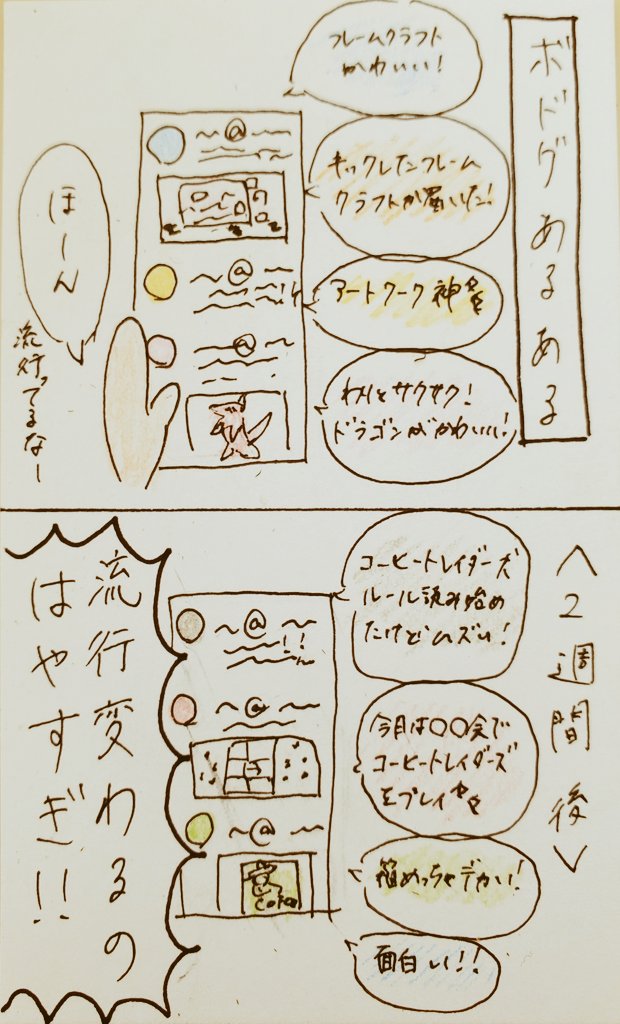 ボドゲあるある
フレームクラフト
かわいい!
キックしたフレーム
クラフトが届いた!
アートワーク神
わりとサクサク!
ドラゴンがかわいい!
ほーん
流行ってるなー
<2週間後>
コーヒートレイダーズ
ルール読み始め
たけどムズい!
今月は〇〇会で
コーヒートレイダーズ
をプレイ
箱めっちゃデカい!
面白い!!
流行変わるの
はやすぎ!!